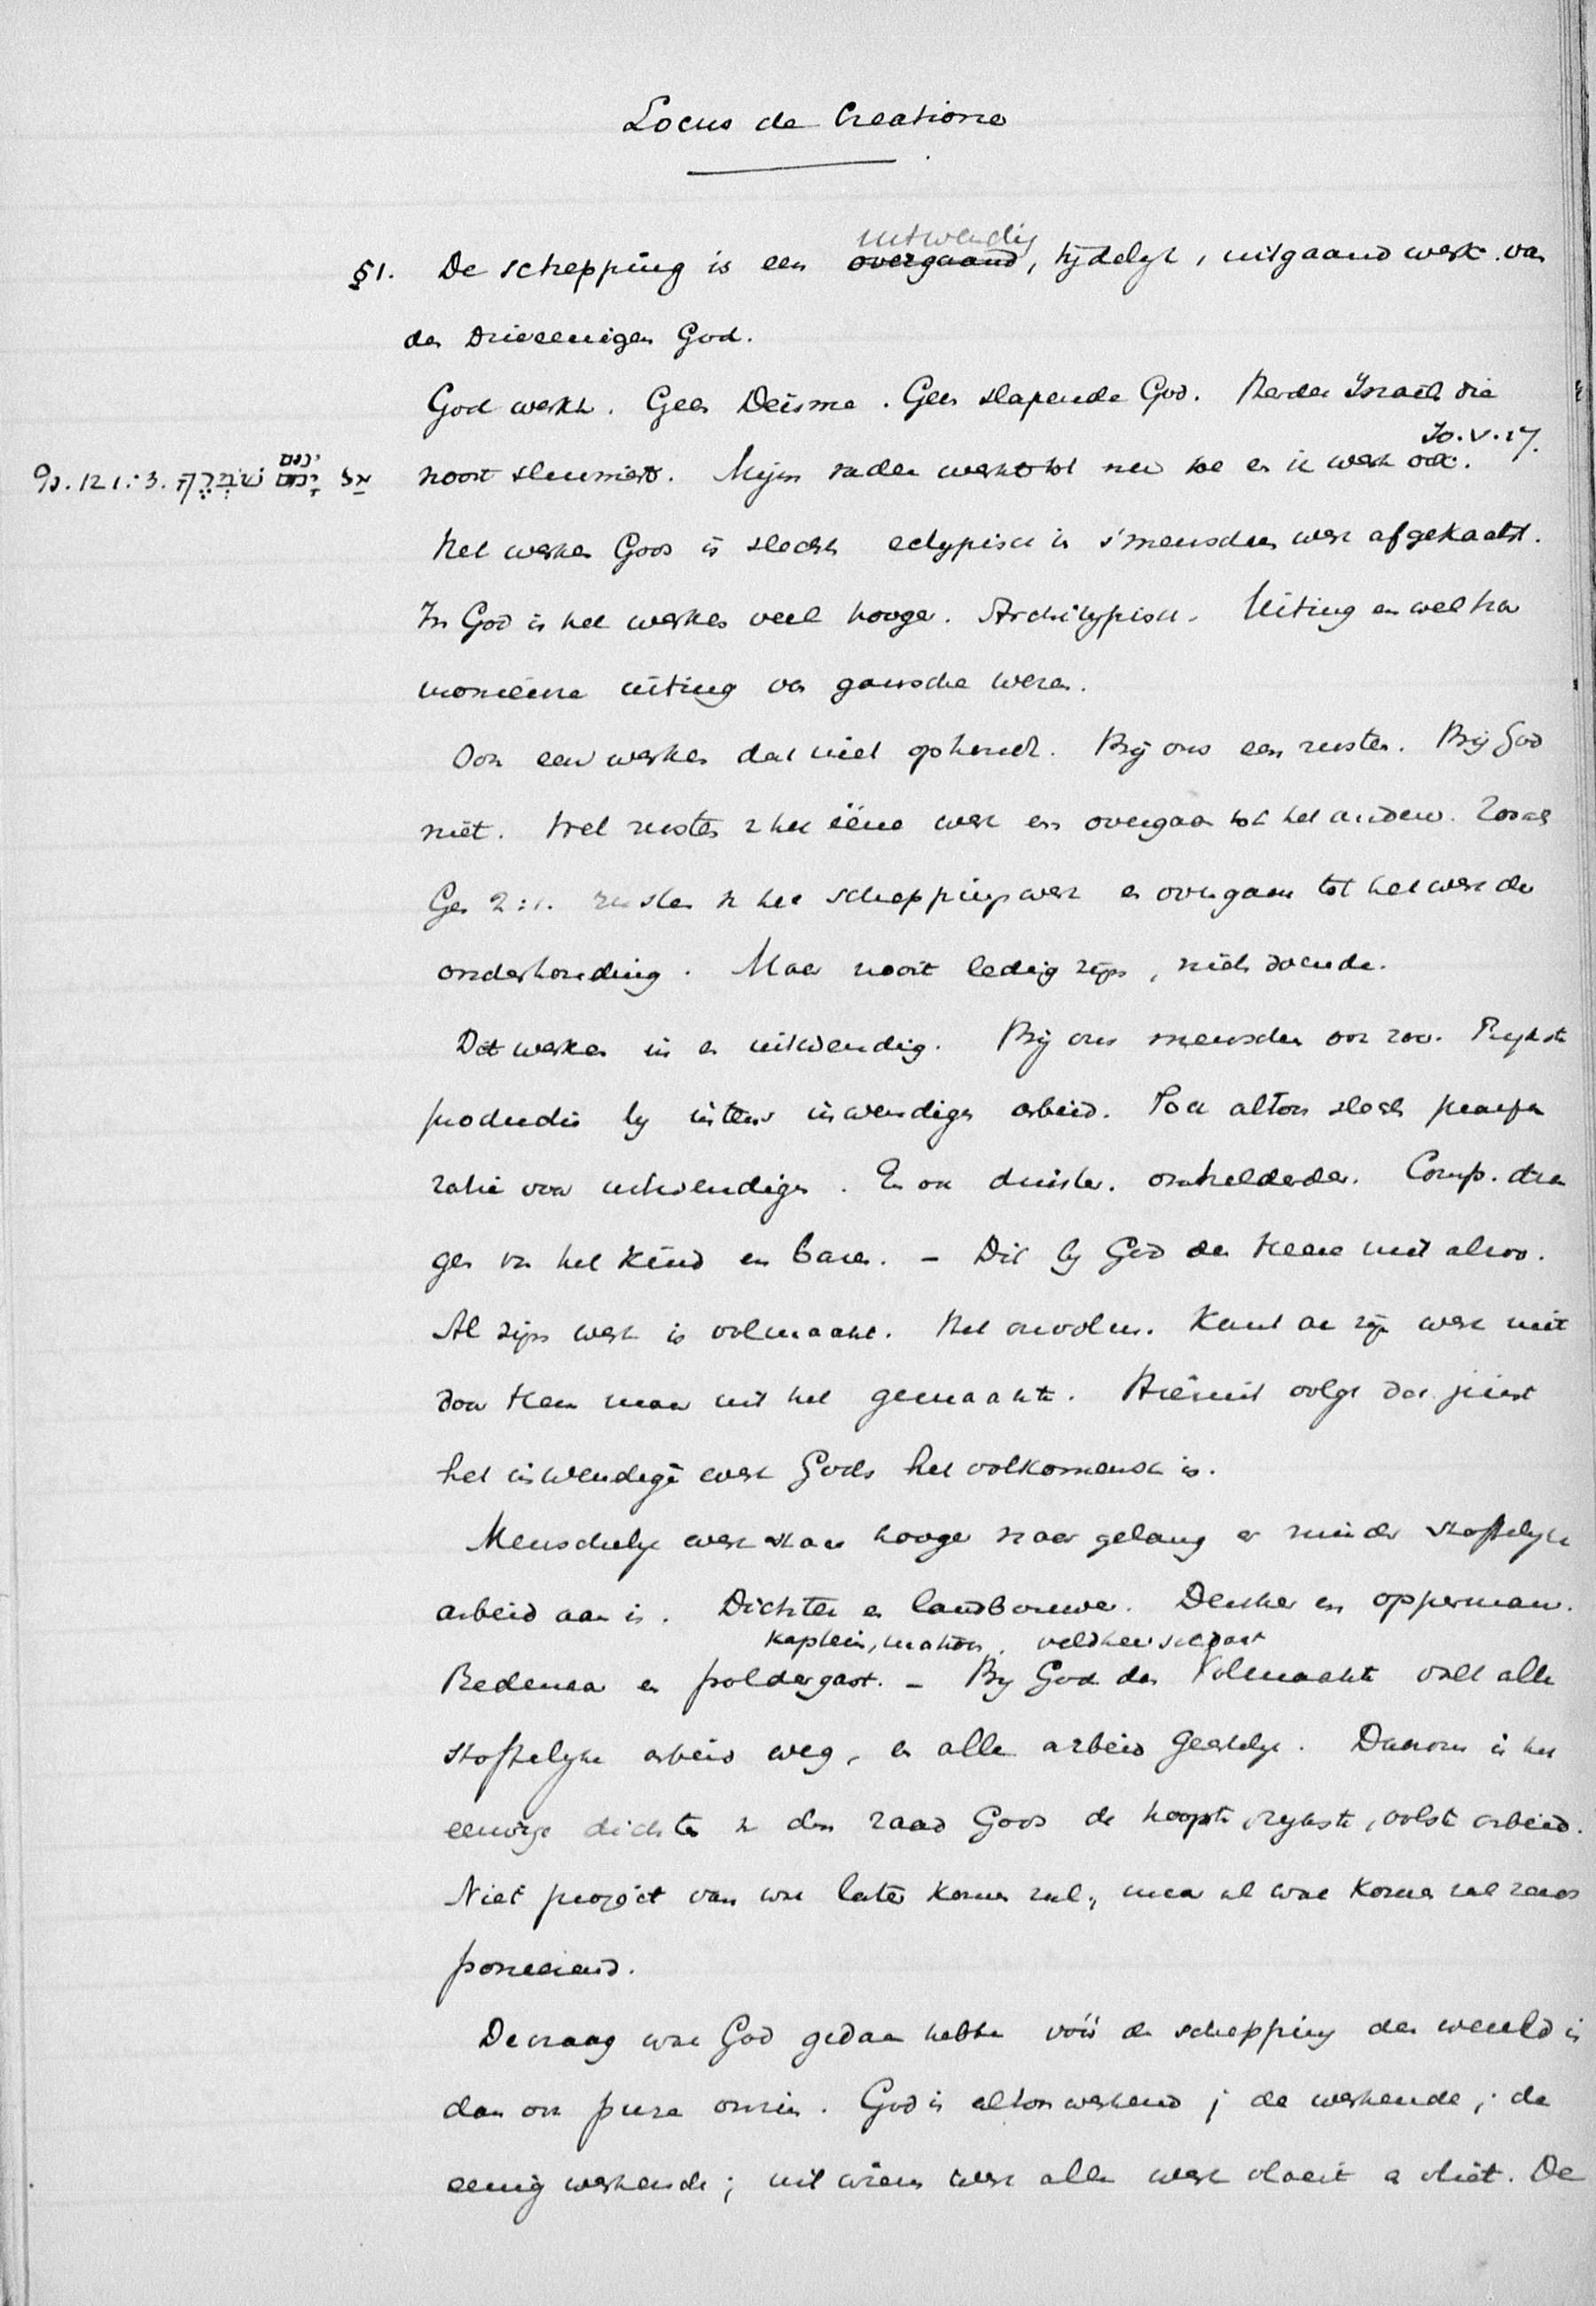 Locus de Creatione
uitwendig
§1. De schepping is een overgaand, tijdelijk, uitgaand werk van
den Drieeenigen God.
God werkt. Geen Deisme. Geen slapende God. Herder Israels die
Jo. V. 17.
nooit sluimert. Mijn vader werkt tot nu toe en ik werk ook.
ינום
Ps. 121:3. אל ינום שמרך
Het werken Gods is slechts ectypisch in s'menschen werk afgekaatst.
In God is het werken veel hooger. Archetypisch. Uiting en wel har
monieuse uiting van gansche wezen.
Ook een werken dat niet ophoudt. Bij ons een rusten. Bij God
niet. Wel rusten v het ééne werk en overgaan tot het andere. Zooals
Gen 2:1. rusten v het scheppingswerk en overgaan tot het werk der
onderhouding. Maar nooit ledig zijn, niets doende.
Dit werken in en uitwendig. Bij ons menschen ook zoo. Rijkste
productie bij intens inwendigen arbeid. Toch altoos slechts praepa
ratie voor uitwendigen. En ook duister. onhelderder. Comp. dra
gen van het kind en baren. – Dit bij God den Heere niet alzoo.
Al zijn werk is volmaakt. Niet onvolm. Kent ook zijn werk niet
door Hem maar uit het gemaakte. Hieruit volgt dat juist
het inwendige werk Gods het volkomenst is.
Menschelijk werk staat hooger naar gelang er minder stoffelijke
arbeid aan is. Dichter en landbouwer. Denker en opperman.
Kaptein, matroos. veldheer soldaat
Redenaar en poldergast. – Bij God den Volmaakte valt alle
stoffelijke arbeid weg, en alle arbeid Geestelijk. Daarom is het
eeuwige dichten v den raad Gods de hoogste, rijkste, volste arbeid.
Niet project van wat later komen zal, maar al wat komen zal reeds
poneerend.
De vraag wat God gedaan hebbe vóór de schepping der wereld is
dan ook pure onzin. God is altoos werkend; de werkende; de
eenig werkende; uit wiens werk alle werk vloeit en vliet. De